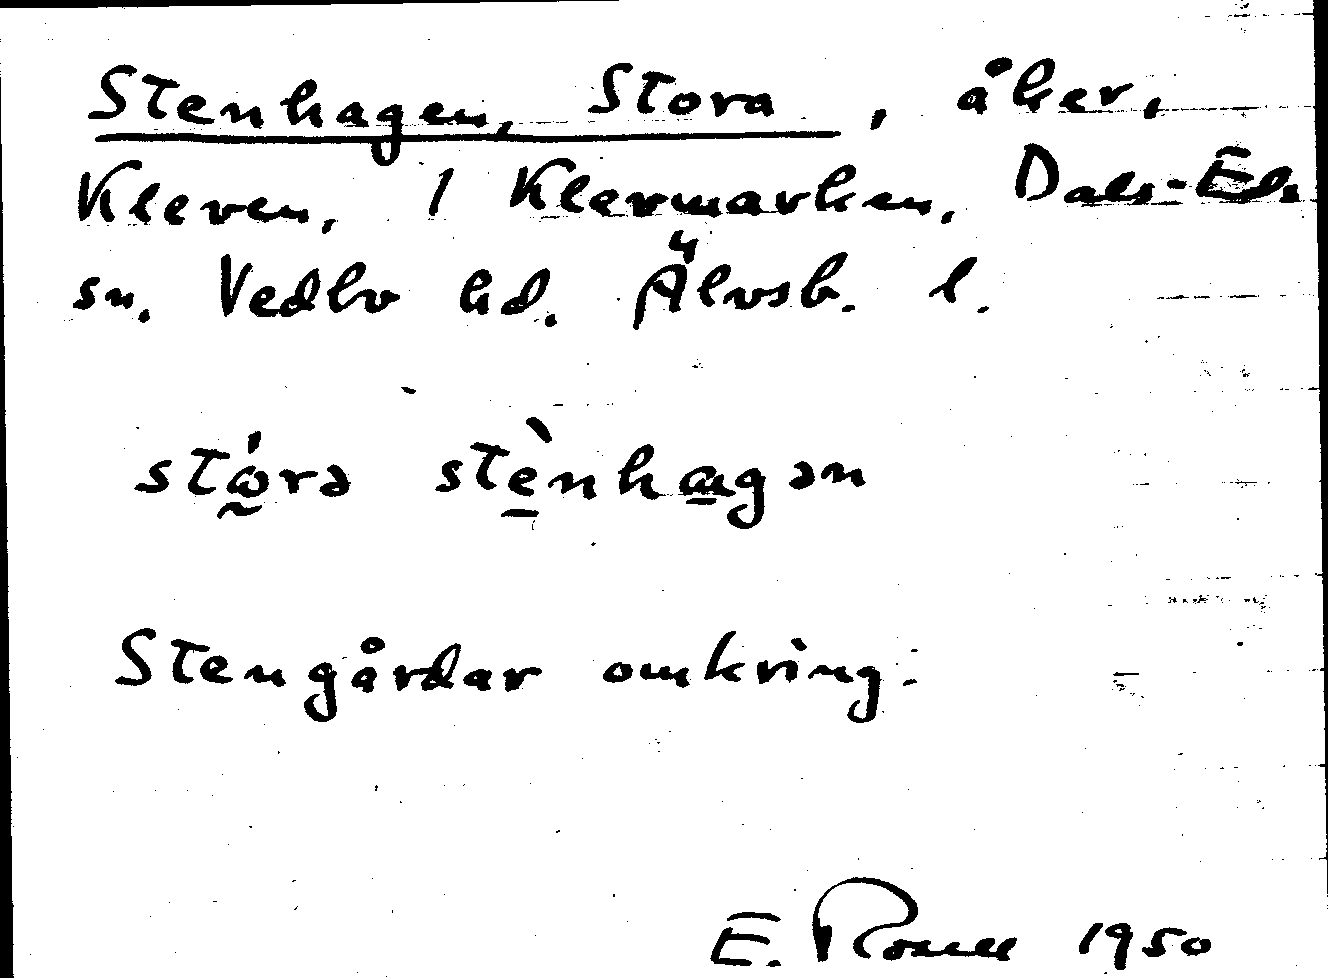 Stenhagen, Stora, åker,
Kleven, 1 Klevmarken, Dals-Eds
sn. Vedbo hd. Älvsb. l.
stó̰rə stè̱nha̱gən
Stengårdar omkring.
E. Rosell 1950